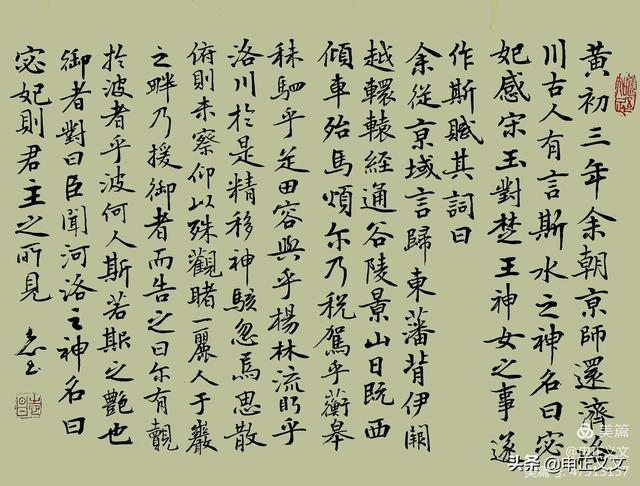 黃初三年余朝京師還濟洛
川古人有言斯水之神名曰宓
妃感宋玉對楚王神女之事遂
作斯賦其詞曰
余從京域言歸東藩背伊闕
越轘轅經通谷陵景山日既西
傾車殆馬煩尔乃稅駕乎蘅皋
秣駟乎芝田容與乎楊林流眄乎
洛川於是精移神駭忽焉思散
俯則未察仰以殊觀睹一麗人于巖
之畔乃援御者而告之曰尔有覿
於彼者乎彼何人斯若斯之艷也
御者對曰臣聞河洛之神名曰
宓妃則君主之所見
美篇
头条 @申正义文